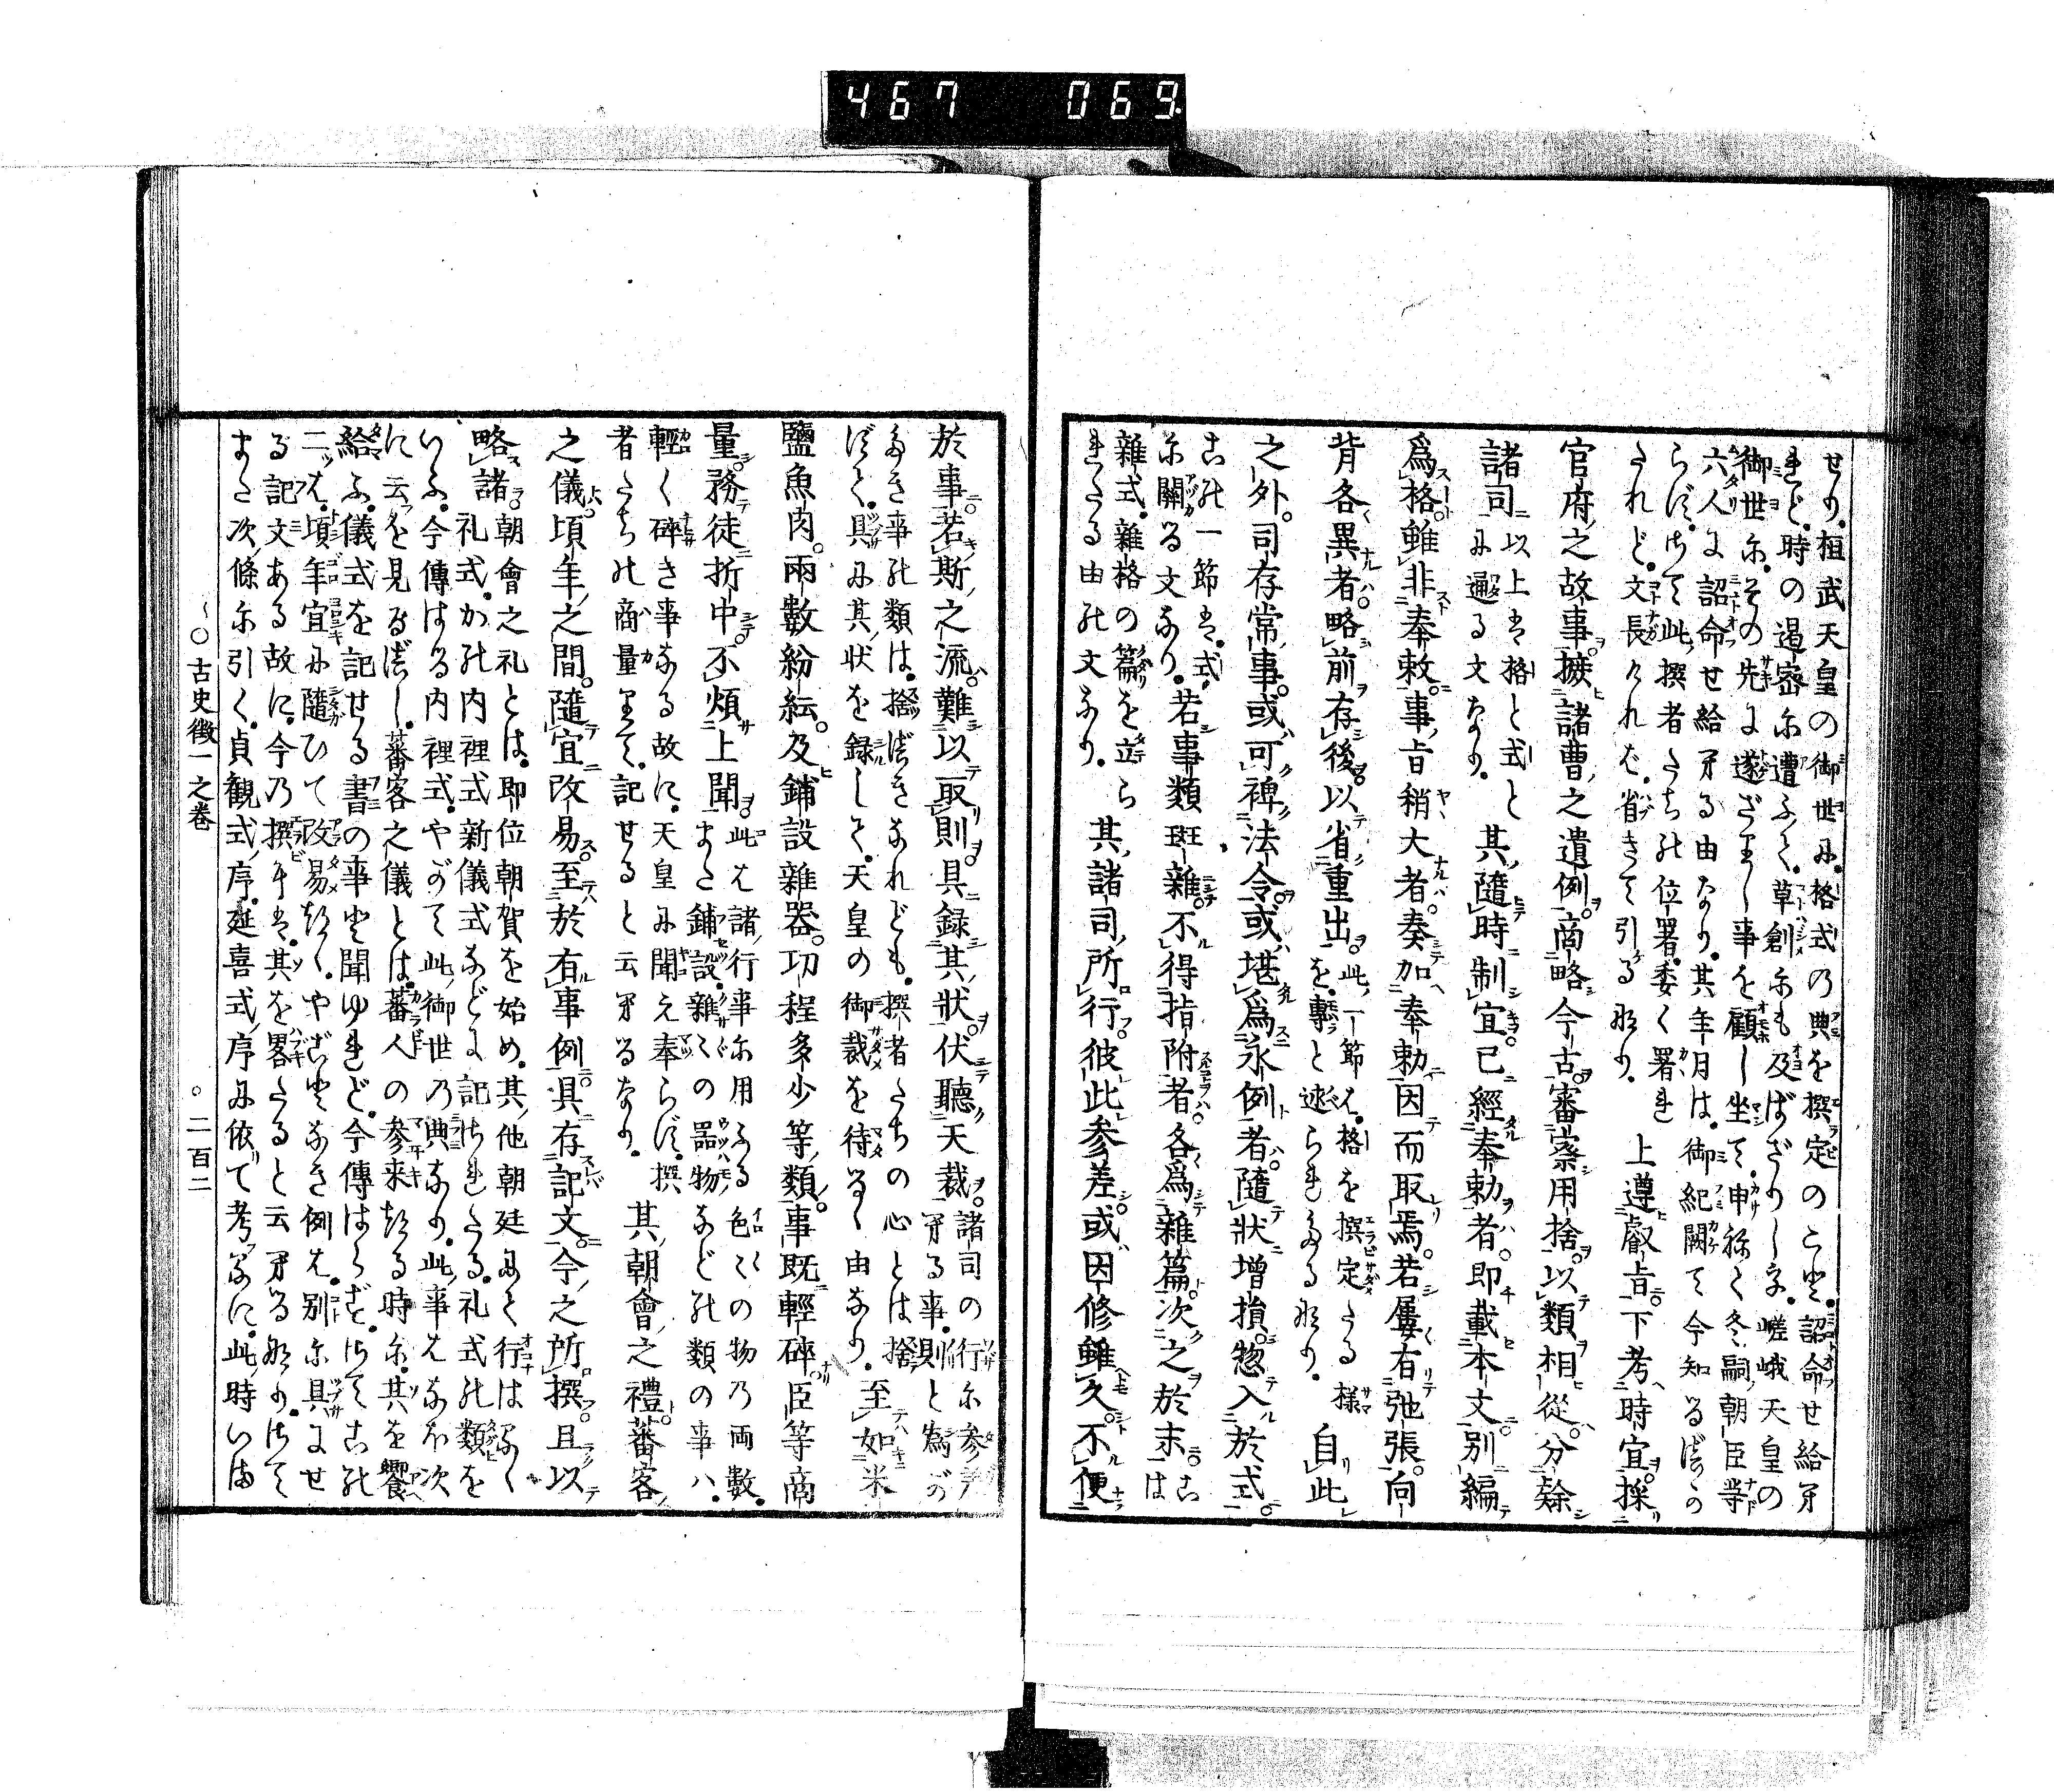 467 069.
せり。桓武天皇の御世に。格式の典を撰定のこと。詔命せ給へ
れど。時の遏密に遭ふて。草創にも及ばざりしを。嵯峨天皇の
御世に。その先に遂ざりし事を顧し坐て。申ねて冬嗣朝臣等
六人に詔命せ給へる由なり。其年月は。御紀闕て今知るべか
らず。さて此撰者たちの位署。委く署れ
たれど。文長ければ。省きて引る也。 上遵叡旨。下考時宜。採
官府之故事。摭諸曹之遺例。商略今古。審察用捨。以類相從。分隸
諸司 以上は格と式と
に遍る文なり。 其隨時制宜。已經奉勅者。即載本文。別編
爲格。雖非奉敕。事旨稍大者。奏加奉勅。因而取焉。若屢有弛張。向
背各異者。略前存後。以省重出。 此一節は。格を撰定たる樣
を擧と述られたる也。 自此
之外。司存常事。或可裨法令。或堪爲永例者。隨狀增損。惣入於式。
この一節は。式
に關る文なり。 若事類斑雜。不得指附者。各爲雜篇。次之於末。 こは
雜式雜格の篇を立ら
れたる由の文なり。 其諸司所行。彼此參差。或因修雖久。不便
於事。若斯之流。難以取則。具録其狀。伏聽天裁。 諸司の行に參
へる事。則と爲が
たき事の類は。捨べきなれども。撰者たちの心とは捨
ずて。具に其狀を録して。天皇の御裁を待るゝ由なり。 至如米
鹽魚肉。兩數紛紜。及鋪設雜器。功程多少等類。事既輕碎。臣等商
量。務徒折中。不煩上聞。 此は諸行事に用ふる色々の物乃両數。
また鋪設雜々の器物などの類の事ハ。
輕く碎き事なる故に。天皇に聞え奉らず。撰
者たちの商量にて。記せると云へるなり。 其朝會之禮。蕃客
之儀。頃年之間。隨宜改易。至於有事例。具存記文。今之所撰。且以
略諸 朝會之礼とは。即位朝賀を始め。其他朝廷にて行はるゝ
礼式。かの内裡式新儀式などに記されたる。礼式の類を
いふ。今傳はる内裡式。やがて此御世乃典なり。此事はなほ次
に云を見るべし。蕃客之儀とは。蕃人の參来ける時に。其を饗
給ふ。儀式を記せる書の事と聞ゆれど。今傳はらず。さてこの
二は。頃年宜に隨ひて改易けく。やごとなき例は。別に具にせ
る記文ある故に。今乃撰には。其を畧たると云へる也。さて
また次條に引く。貞観式序。延喜式序に依て考ふるに。此時いま
古史徴一之巻
二百二